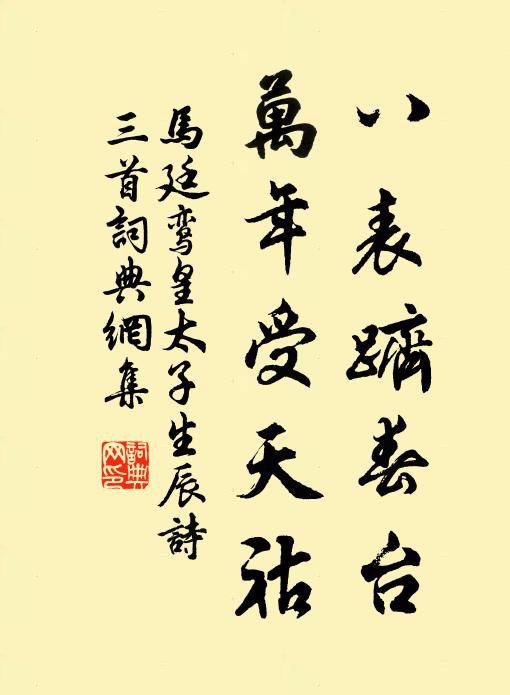 八表躋春台
萬年受天祐
馬廷鸞皇太子生辰詩
三首詞典網集
詞典
网印